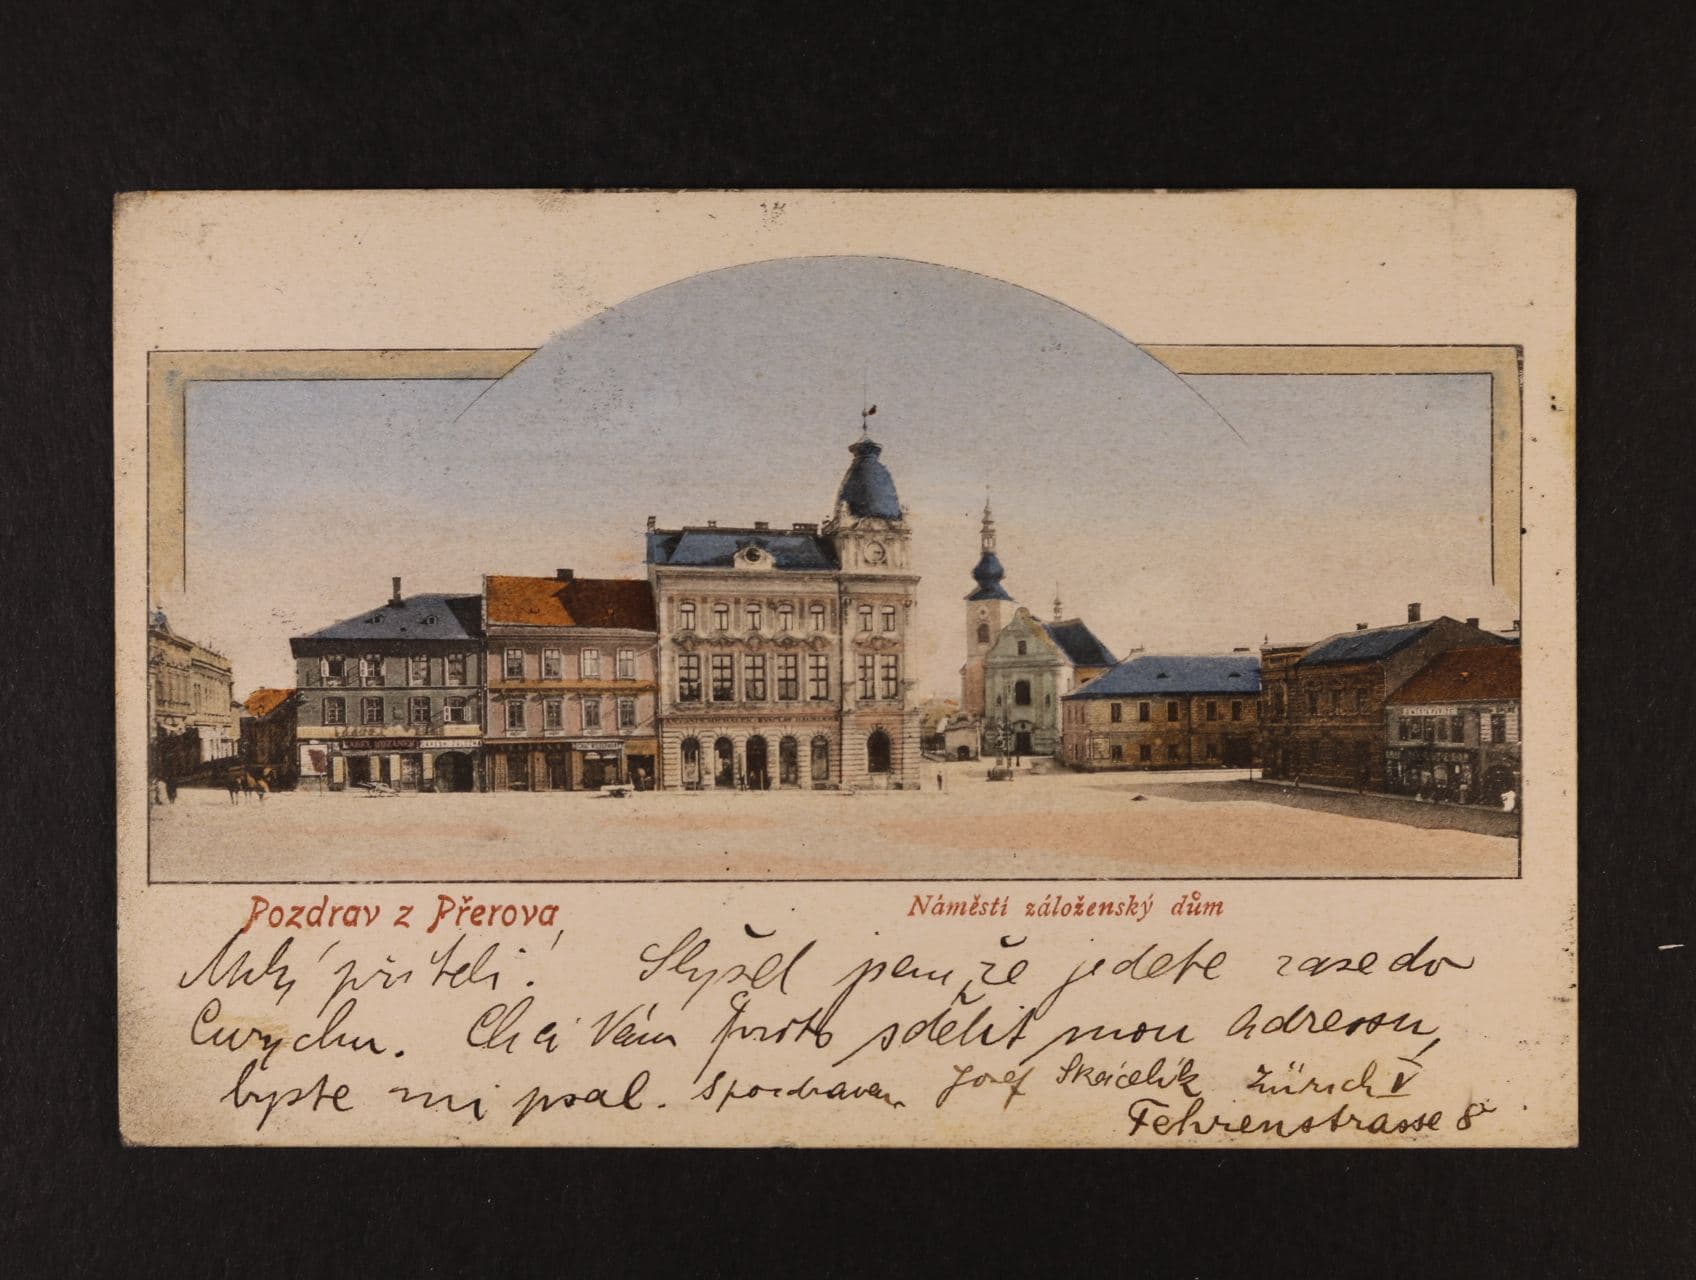 KAREL BOZÁNEK
Pozdrav z Přerova
Náměstí záloženský dům
Milý příteli! Slyšel jsem, že jedete zase do
Curychu. Chci Vám proto sdělit mou adressu,
byste mi psal. S pozdravem Josef Skácelík Zürich V
Fehrenstrasse 8